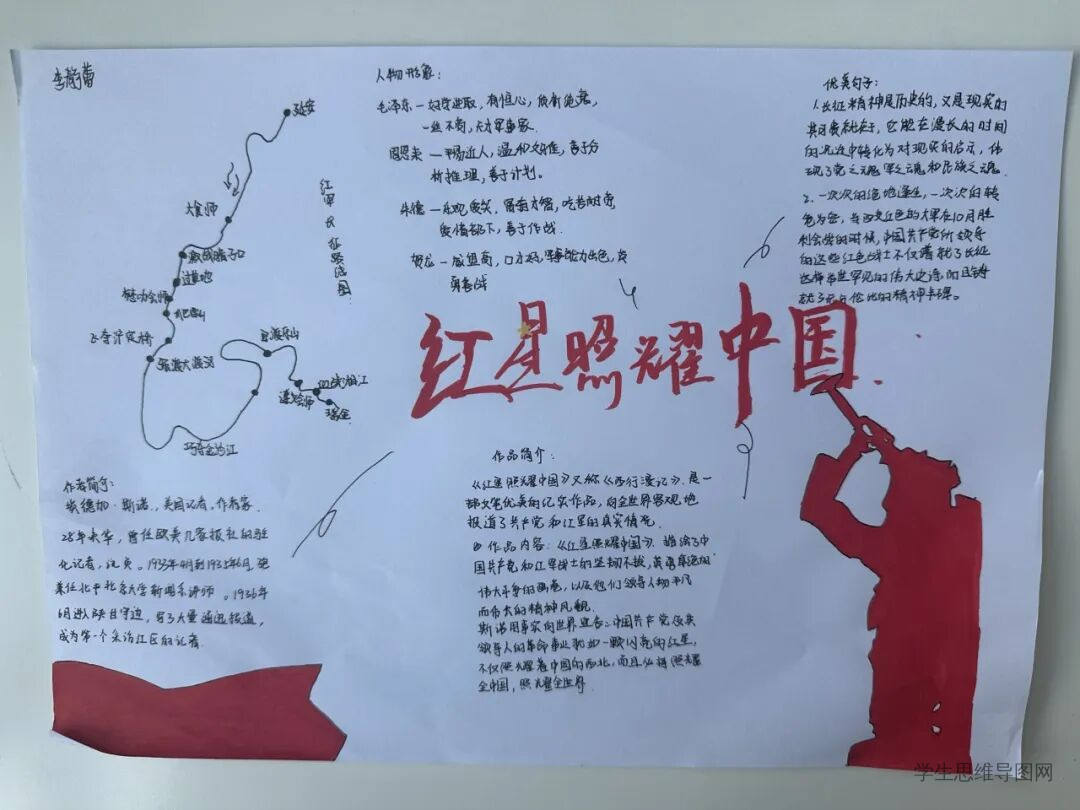 李静蕾
延安
大会师
激战腊子口
过草地
懋功会师
爬雪山
飞夺泸定桥
强渡大渡河
巧夺金沙江
四渡赤水
遵义会师
血战湘江
瑞金
红军长征路线图
人物形象：
毛泽东—好学进取，有恒心，
一丝不苟，天才军事家.
周恩来—平易近人，温和文雅，善于分
析推理，善于计划。
朱德—乐观爱笑，吃苦耐劳
爱惜部下，善于作战.
贺龙—口才好，军事能力出色，
英勇善战
优美句子：
1.长征精神是历史的，又是现实的
其可贵就在于，它能在漫长的时间
的流逝中转化为对现实的启示，体
现了党之魂军之魂和民族之魂.
2.一次次的绝地逢生，一次次的转
危为安，当西支红色的大军在10月胜
利会师的时候，中国共产党所领导
的这些红色战士不仅谱就了长征
这样举世罕见的伟大史诗，而且铸
就了无与伦比的精神丰碑。
红星照耀中国
作者简介：
埃德加·斯诺.，美国记者，作者家.
28年来华，曾任欧美几家报社的驻
华记者，1933年4月到1935年6月，
兼任北平北京大学新闻系讲师。1936年
6月进入陕甘宁边，写了大量通迅报道，
成为第一个采访红区的记者.
作品简介：
《红星照耀中国》又称《西行漫记》.是一
部文笔优美的纪实作品，向全世界客观地
报道了共产党和红军的真实情况.
作品内容：《红星照耀中国》.描绘了中
国共产党和红军战士的坚韧不拔，英勇卓绝的
伟大斗争的画卷，以及他们领导人物平凡
而伟大的精神风貌.
斯诺用事实向世界宣告：中国共产党及其
领导人的革命事业犹如一颗闪亮的红星，
不仅照耀着中国的西北，而且必将照耀
全中国，照耀全世界.
学生思维导图网